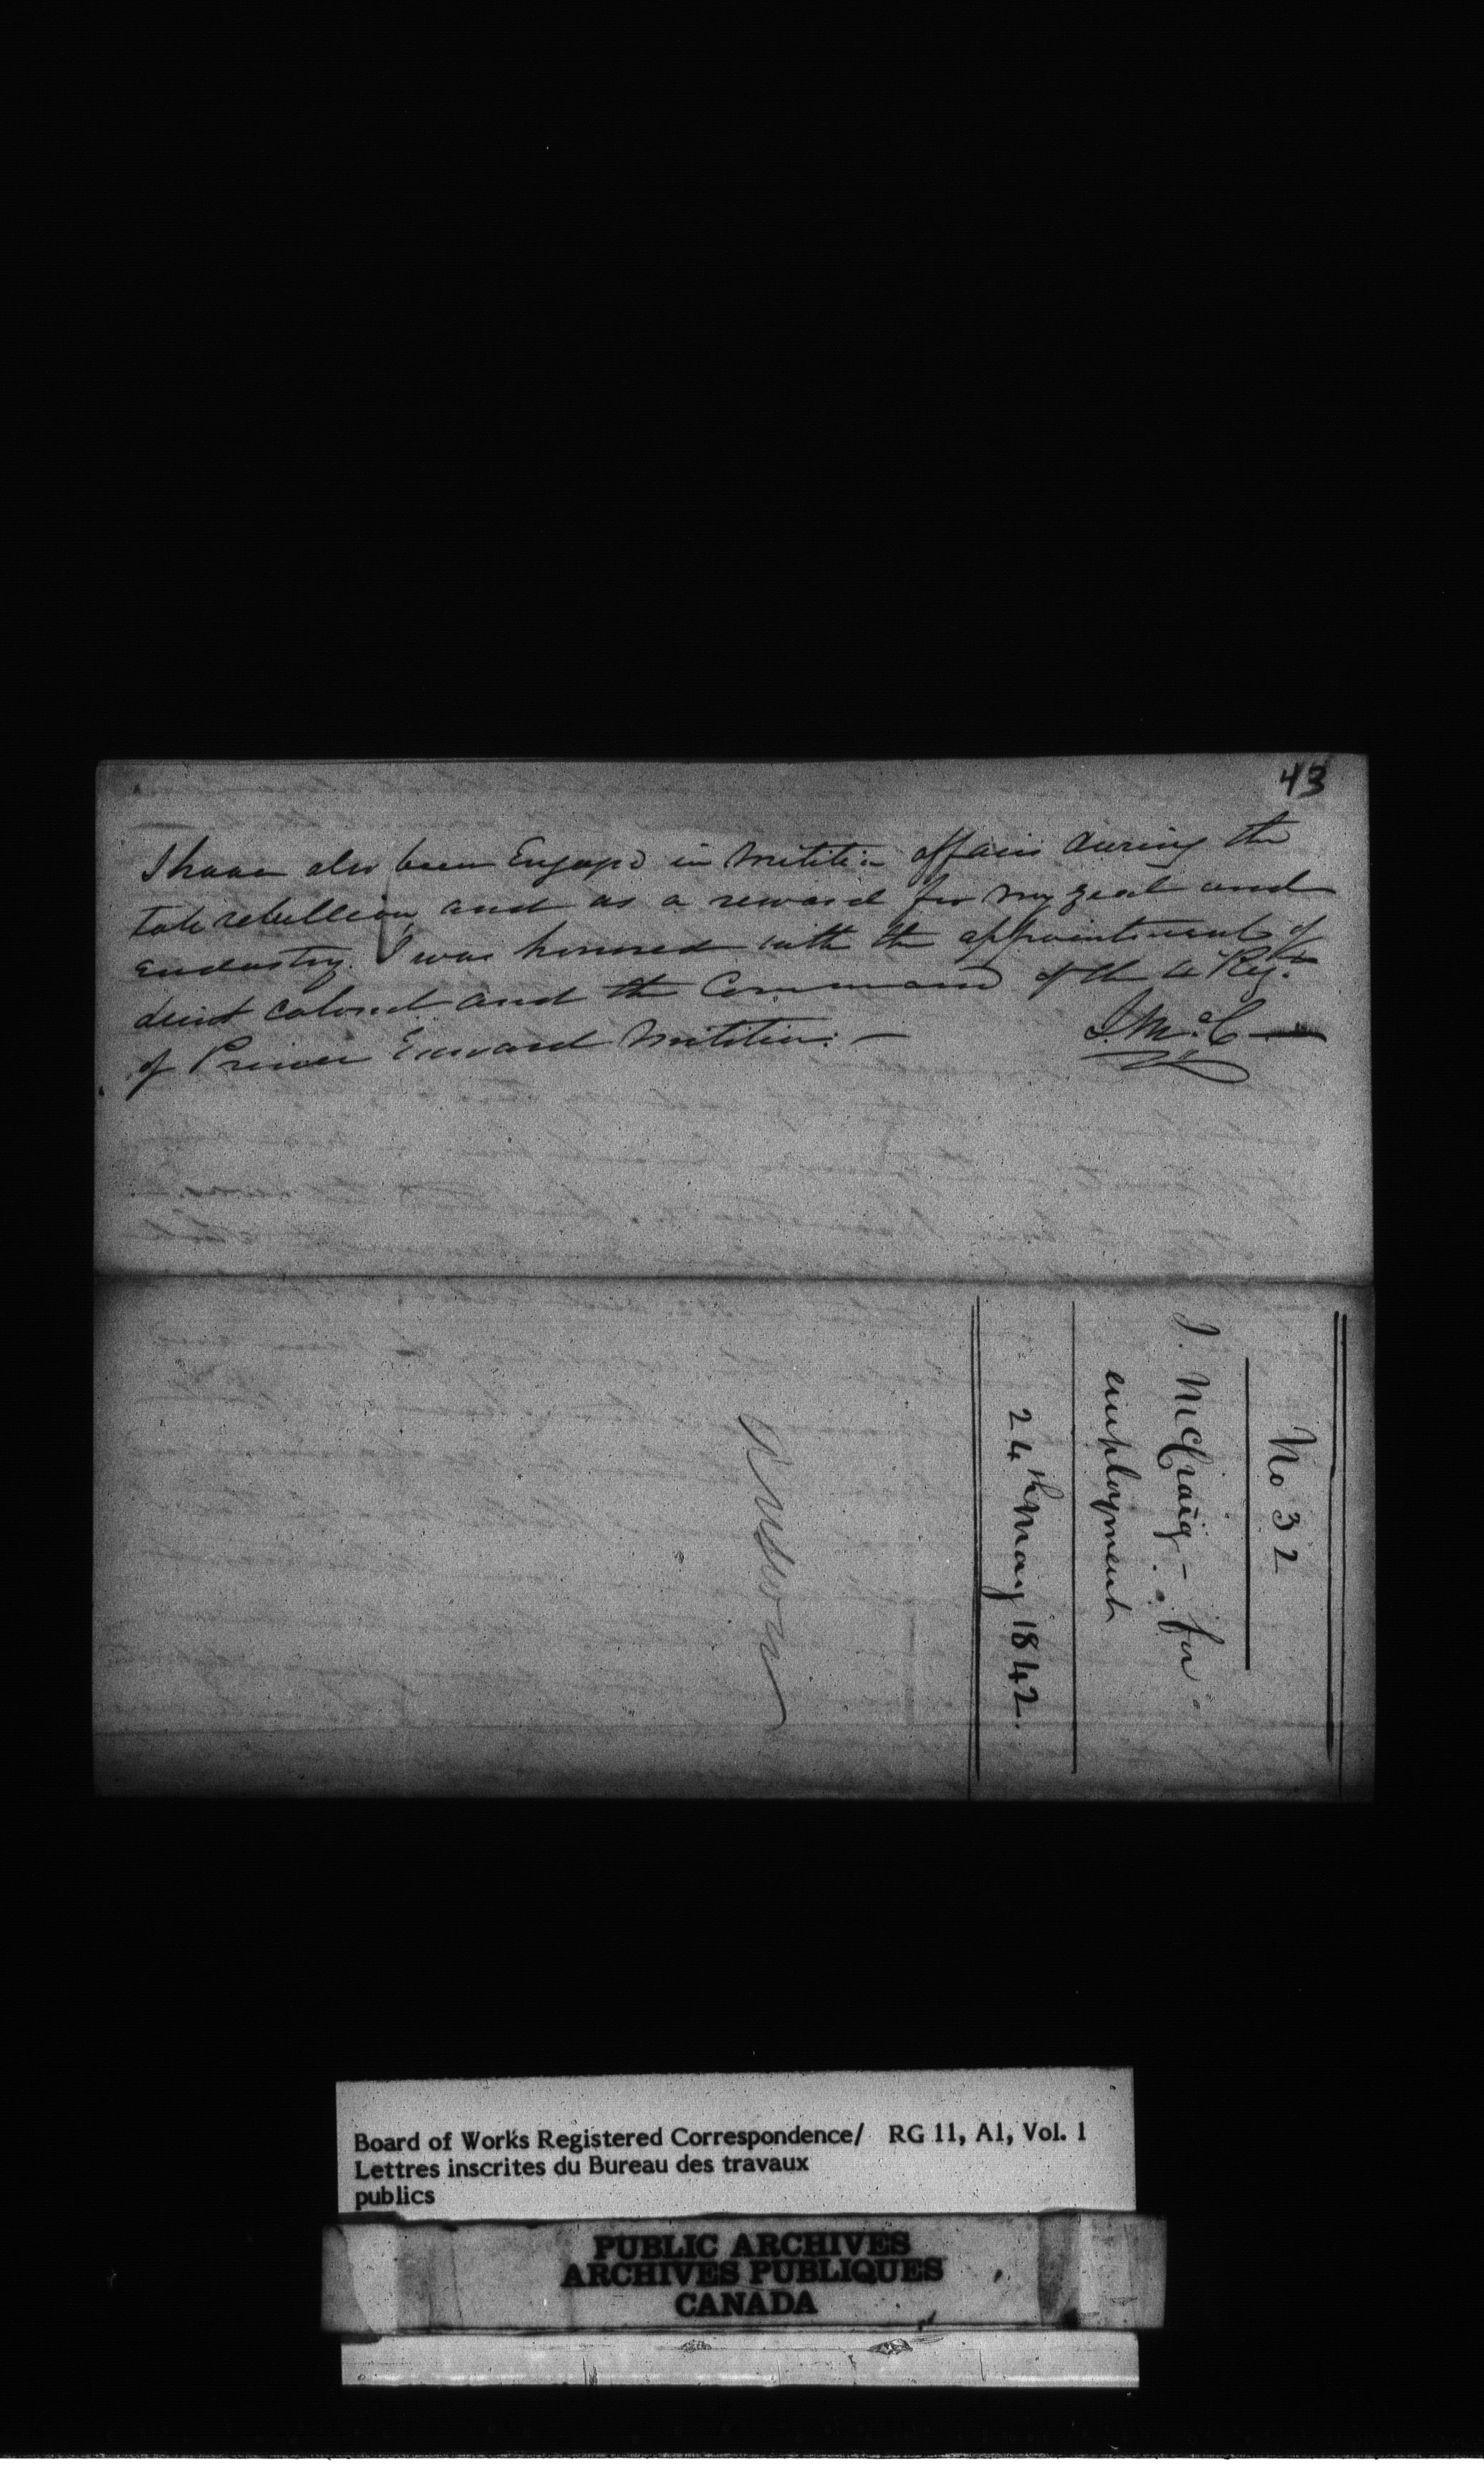 43
I have also been Engag'd in Militia affairs during the
late rebellion, and as a reward for my zeal and
endustry. I was honored with the appointment of
Lieut colonel and the Command of the 4 Regt
of Prince Edward Militia. —
J. McC —
No 32
J. McCraig - for
employment
24th May 1842.
Answd
Board of Works Registered Correspondence/ RG 11, A1, Vol. 1
Lettres inscrites du Bureau des travaux
publics
PUBLIC ARCHIVES
ARCHIVES PUBLIQUES
CANADA